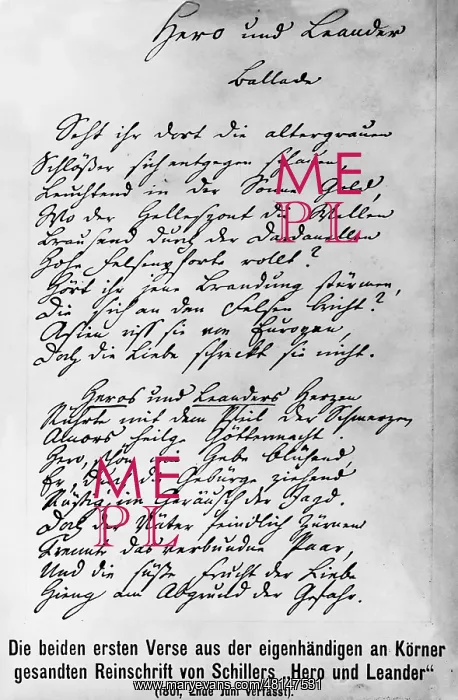 Hero und Leander
Ballade
Seht ihr dort die altergrauen
Schlößer sich entgegen schauen,
Leuchtend in der Sonne Gold,
Wo der Hellespont die Wellen
Brausend durch der Dardanellen
Hohe Felsenpforte rollt?
Hört ihr jene Brandung stürmen,
Die sich an den Felsen bricht?
Asien riss sie von Europen,
Doch die Liebe schreckt sie nicht.
Heros und Leanders Herzen
Rührte mit dem Pfeil der Schmerzen
Amors heilge Göttermacht.
Hero, schön wie Hebe blühend,
Er, durch die Gebürge ziehend
Rüstig im Geräusch der Jagd.
Doch der Väter feindlich Zürnen
Trennte das verbundne Paar,
Und die süße Frucht der Liebe
Hieng am Abgrund der Gefahr.
ME
PL
ME
PL
Die beiden ersten Verse aus der eigenhändigen an Körner
gesandten Reinschrift von Schillers „Hero und Leander“
(1801, Ende Juni verfasst).
www.maryevans.com/48147531